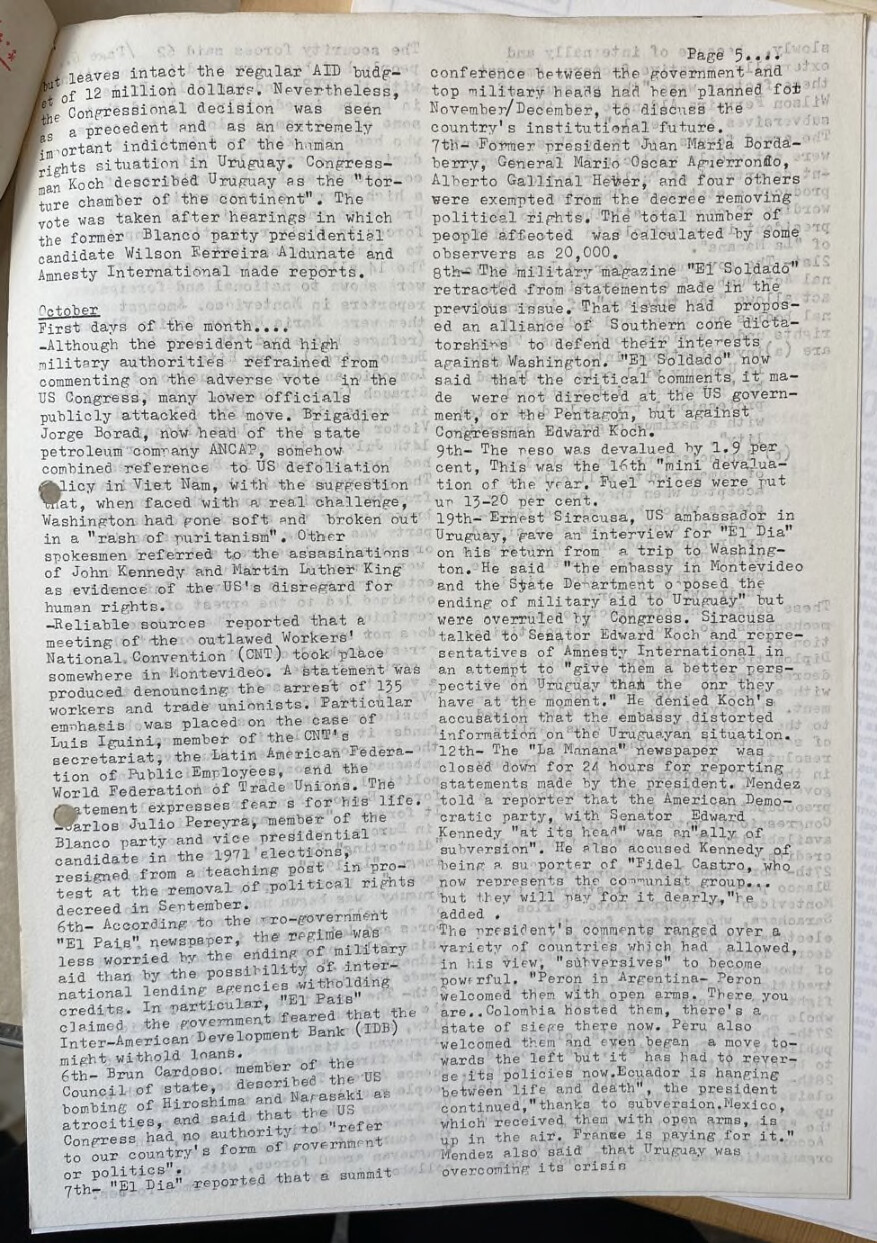 Page 5....
but leaves intact the regular AID budg-
et of 12 million dollars. Nevertheless,
the Congressional decision was seen
as a precedent and as an extremely
important indictment of the human
rights situation in Uruguay. Congress-
man Koch described Uruguay as the "tor-
ture chamber of the continent". The
vote was taken after hearings in which
the former Blanco party presidential
candidate Wilson Ferreira Aldunate and
Amnesty International made reports.
October
First days of the month....
-Although the president and high
military authorities refrained from
commenting on the adverse vote in the
US Congress, many lower officials
publicly attacked the move. Brigadier
Jorge Borad, now head of the state
petroleum company ANCAP, somehow
combined reference to US defoliation
policy in Viet Nam, with the suggestion
that, when faced with a real challenge,
Washington had gone soft and broken out
in a "rash of puritanism". Other
spokesmen referred to the assasinations
of John Kennedy and Martin Luther King
as evidence of the US's disregard for
human rights.
-Reliable sources reported that a
meeting of the outlawed Workers'
National Convention (CNT) took place
somewhere in Montevideo. A statement was
produced denouncing the arrest of 135
workers and trade unionists. Particular
emphasis was placed on the case of
Luis Iguini, member of the CNT's
secretariat, the Latin American Federa-
tion of Public Employees, and the
World Federation of Trade Unions. The
statement expresses fear s for his life.
-Carlos Julio Pereyra, member of the
Blanco party and vice presidential
candidate in the 1971 elections,
resigned from a teaching post in pro-
test at the removal of political rights
decreed in September.
6th- According to the pro-government
"El Pais" newspaper, the regime was
less worried by the ending of military
aid than by the possibility of inter-
national lending agencies witholding
credits. In particular, "El Pais"
claimed the government feared that the
Inter-American Development Bank (IDB)
might withold loans.
6th- Brun Cardoso. member of the
Council of state, described the US
bombing of Hiroshima and Nagasaki as
atrocities, and said that the US
Congress had no authority to "refer
to our country's form of government
or politics".
7th- "El Dia" reported that a summit
conference between the government and
top military heads had been planned for
November/December, to discuss the
country's institutional future.
7th- Former president Juan Maria Borda-
berry, General Mario Oscar Agierrondo,
Alberto Gallinal Heber, and four others
were exempted from the decree removing
political rights. The total number of
people affected was calculated by some
observers as 20,000.
8th- The military magazine "El Soldado"
retracted from statements made in the
previous issue. That issue had propos-
ed an alliance of Southern cone dicta-
torships to defend their interests
against Washington. "El Soldado" now
said that the critical comments it ma-
de were not directed at the US govern-
ment, or the Pentagon, but against
Congressman Edward Koch.
9th- The peso was devalued by 1.9 per
cent, This was the 16th "mini devalua-
tion of the year. Fuel prices were put
up 13-20 per cent.
19th- Ernest Siracusa, US ambassador in
Uruguay, gave an interview for "El Dia"
on his return from a trip to Washing-
ton. He said "the embassy in Montevideo
and the State Department opposed the
ending of military aid to Uruguay" but
were overruled by Congress. Siracusa
talked to Senator Edward Koch and repre-
sentatives of Amnesty International in
an attempt to "give them a better pers-
pective on Uruguay than the onr they
have at the moment." He denied Koch's
accusation that the embassy distorted
information on the Uruguayan situation.
12th- The "La Manana" newspaper was
closed down for 24 hours for reporting
statements made by the president. Mendez
told a reporter that the American Demo-
cratic party, with Senator Edward
Kennedy "at its head" was an"ally of
subversion". He also accused Kennedy of
being a supporter of "Fidel Castro, who
now represents the communist group...
but they will pay for it dearly,"he
added .
The president's comments ranged over a
variety of countries which had allowed,
in his view, "subversives" to become
powerful. "Peron in Argentina- Peron
welcomed them with open arms. There you
are..Colombia hosted them, there's a
state of siege there now. Peru also
welcomed them and even began a move to-
wards the left but it has had to rever-
se its policies now.Ecuador is hanging
between life and death", the president
continued,"thanks to subversion.Mexico,
which received them with open arms, is
up in the air. France is paying for it."
Mendez also said that Uruguay was
overcoming its crisis